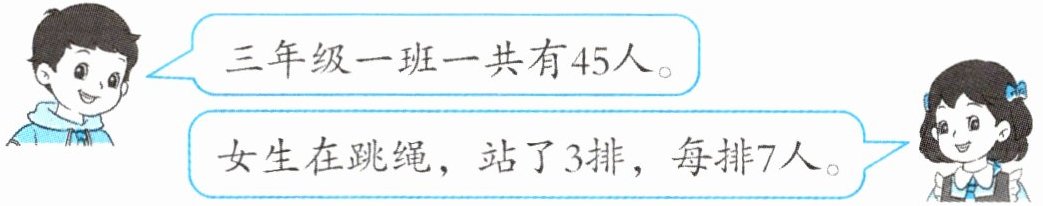 三年级一班一共有45人。
女生在跳绳，站了3排，每排7人。